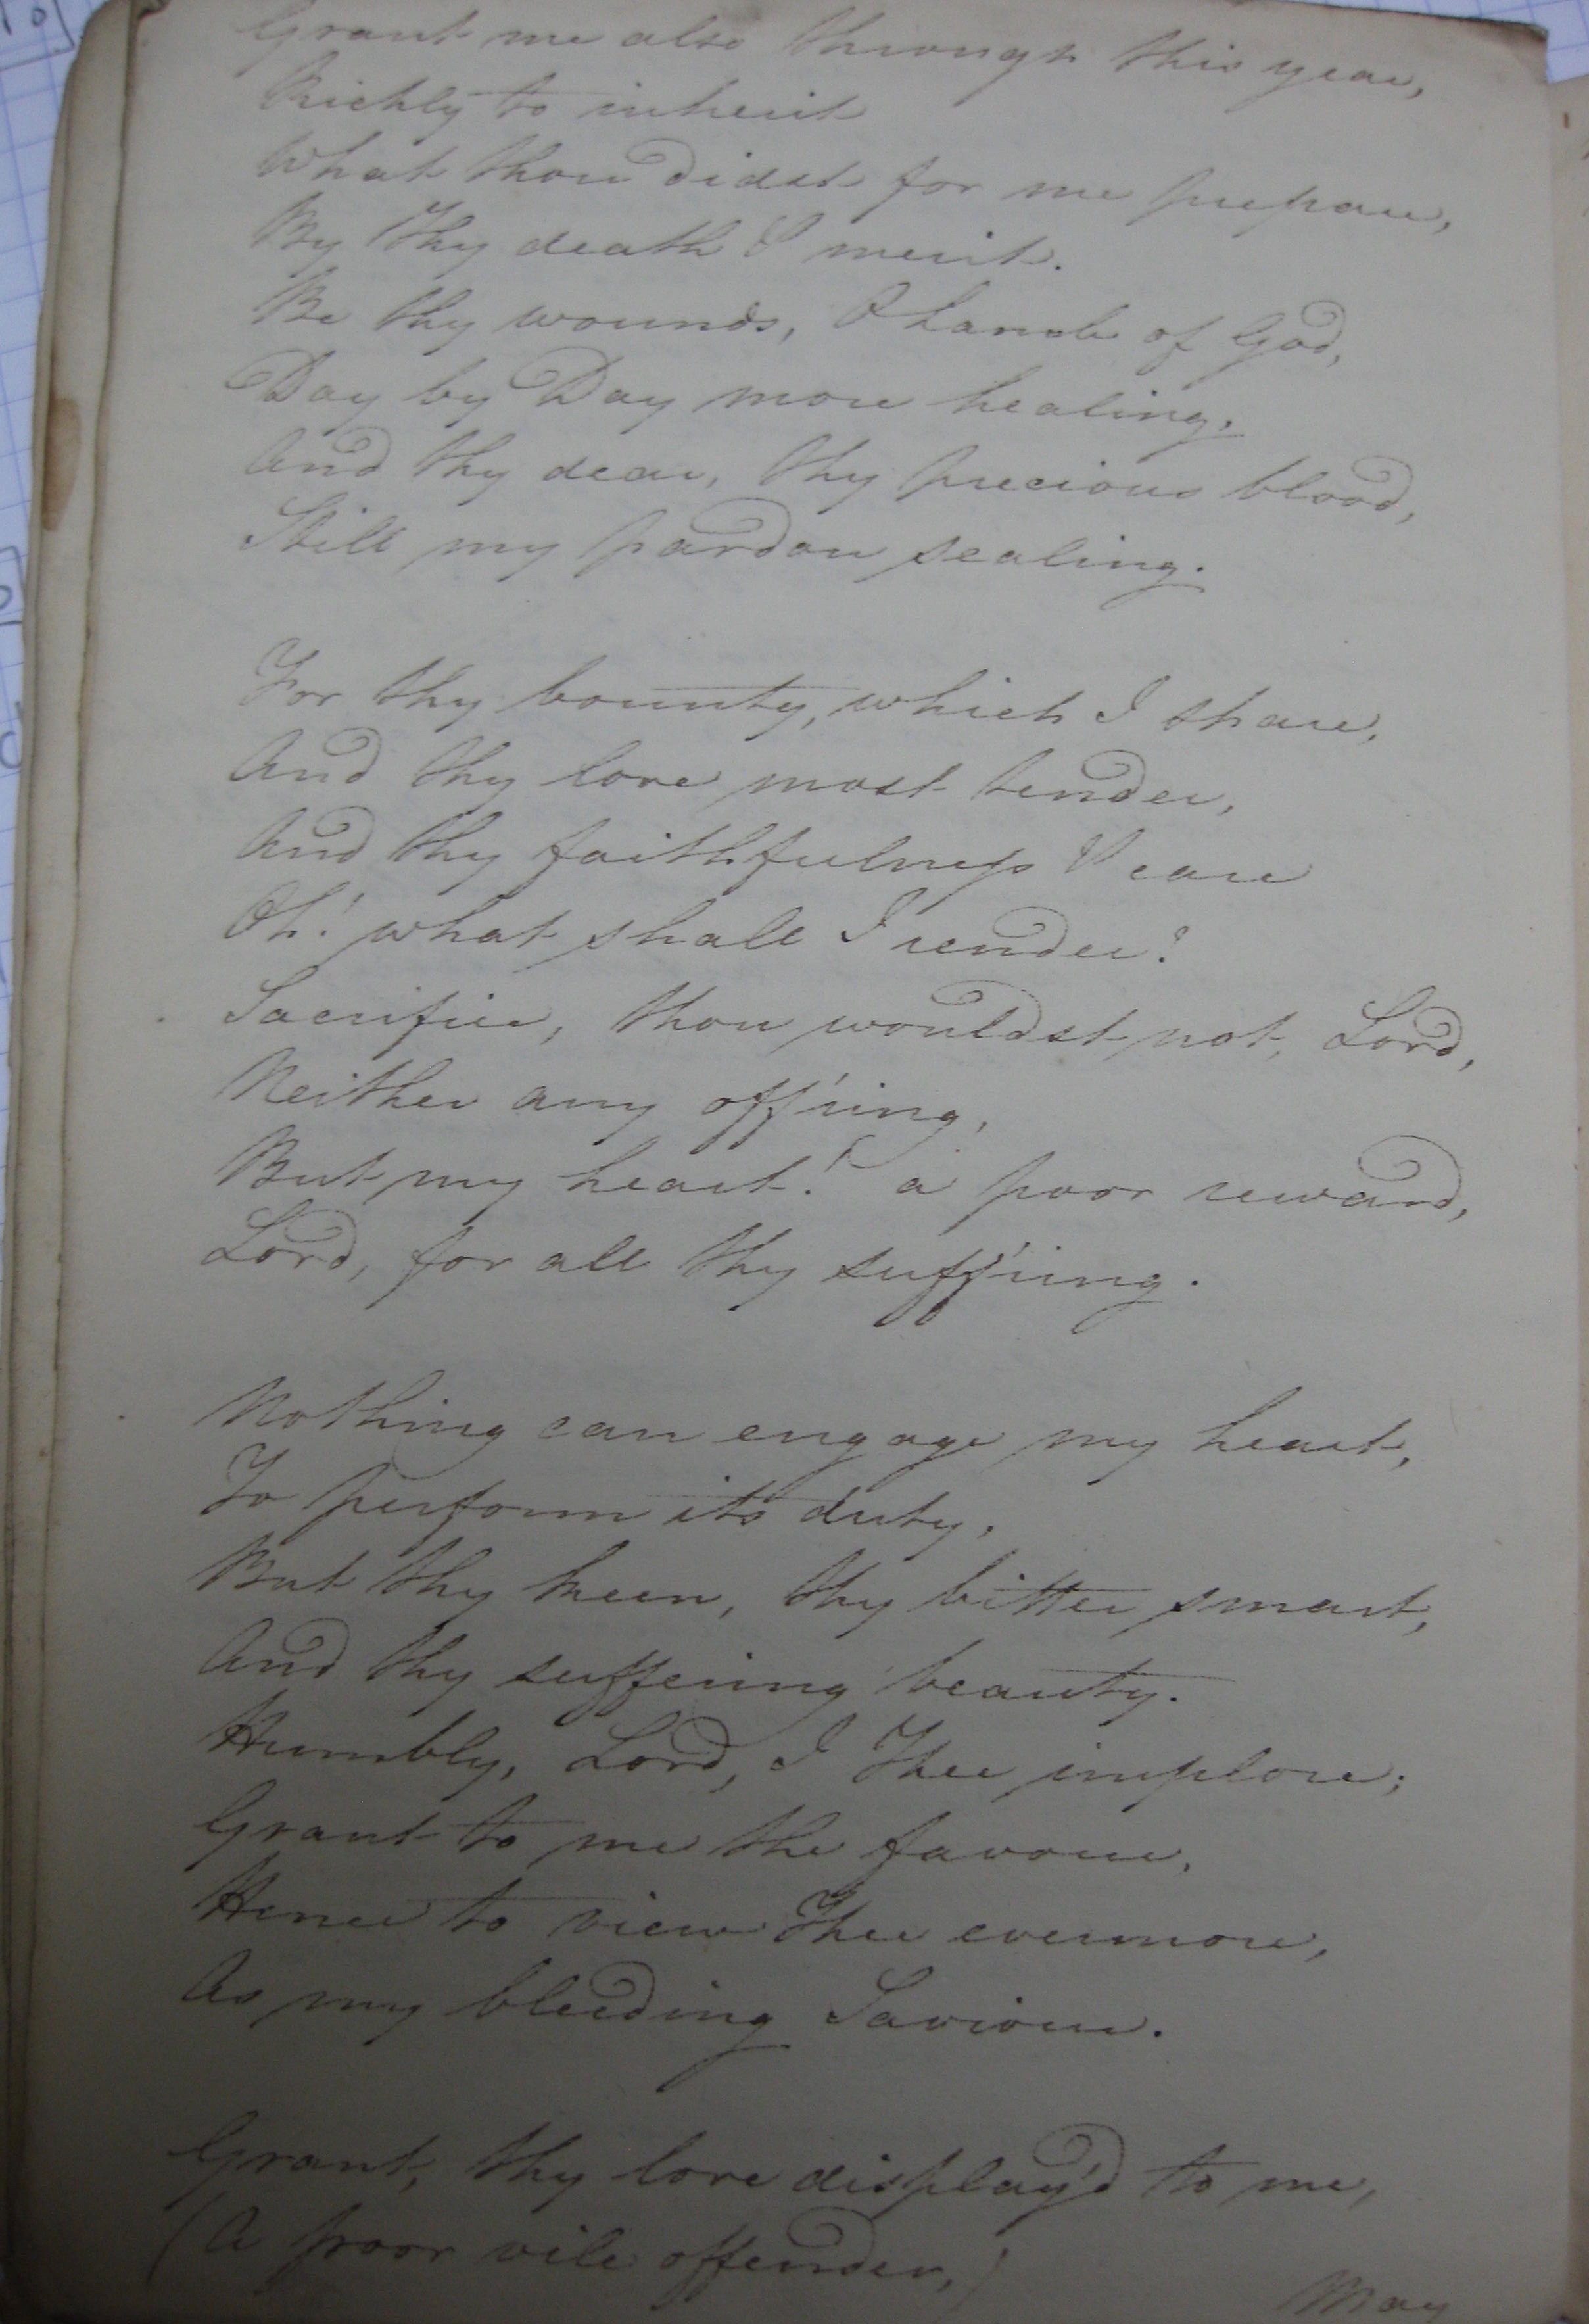 Grant me also through this year,
Richly to inherit
What thou didst for me prepare,
By Thy death & merit.
Be thy wounds, O Lamb of God,
Day by Day more healing,
And thy dear, thy precious blood,
Still my pardon sealing.
For thy bounty, which I share,
And thy love most tender,
And thy faithfulness & care
Oh! what shall I render?
Sacrifice, thou wouldst not, Lord,
Neither any off'ring,
But my heart! a poor reward,
Lord, for all thy suff'ring.
Nothing can engage my heart,
To perform its duty,
But thy keen, thy bitter smart,
And thy suffering beauty.
Humbly, Lord, I Thee implore;
Grant to me the favour,
Hence to view Thee evermore,
As my bleeding Saviour.
Grant, thy love display'd to me,
(A poor vile offender,)
May